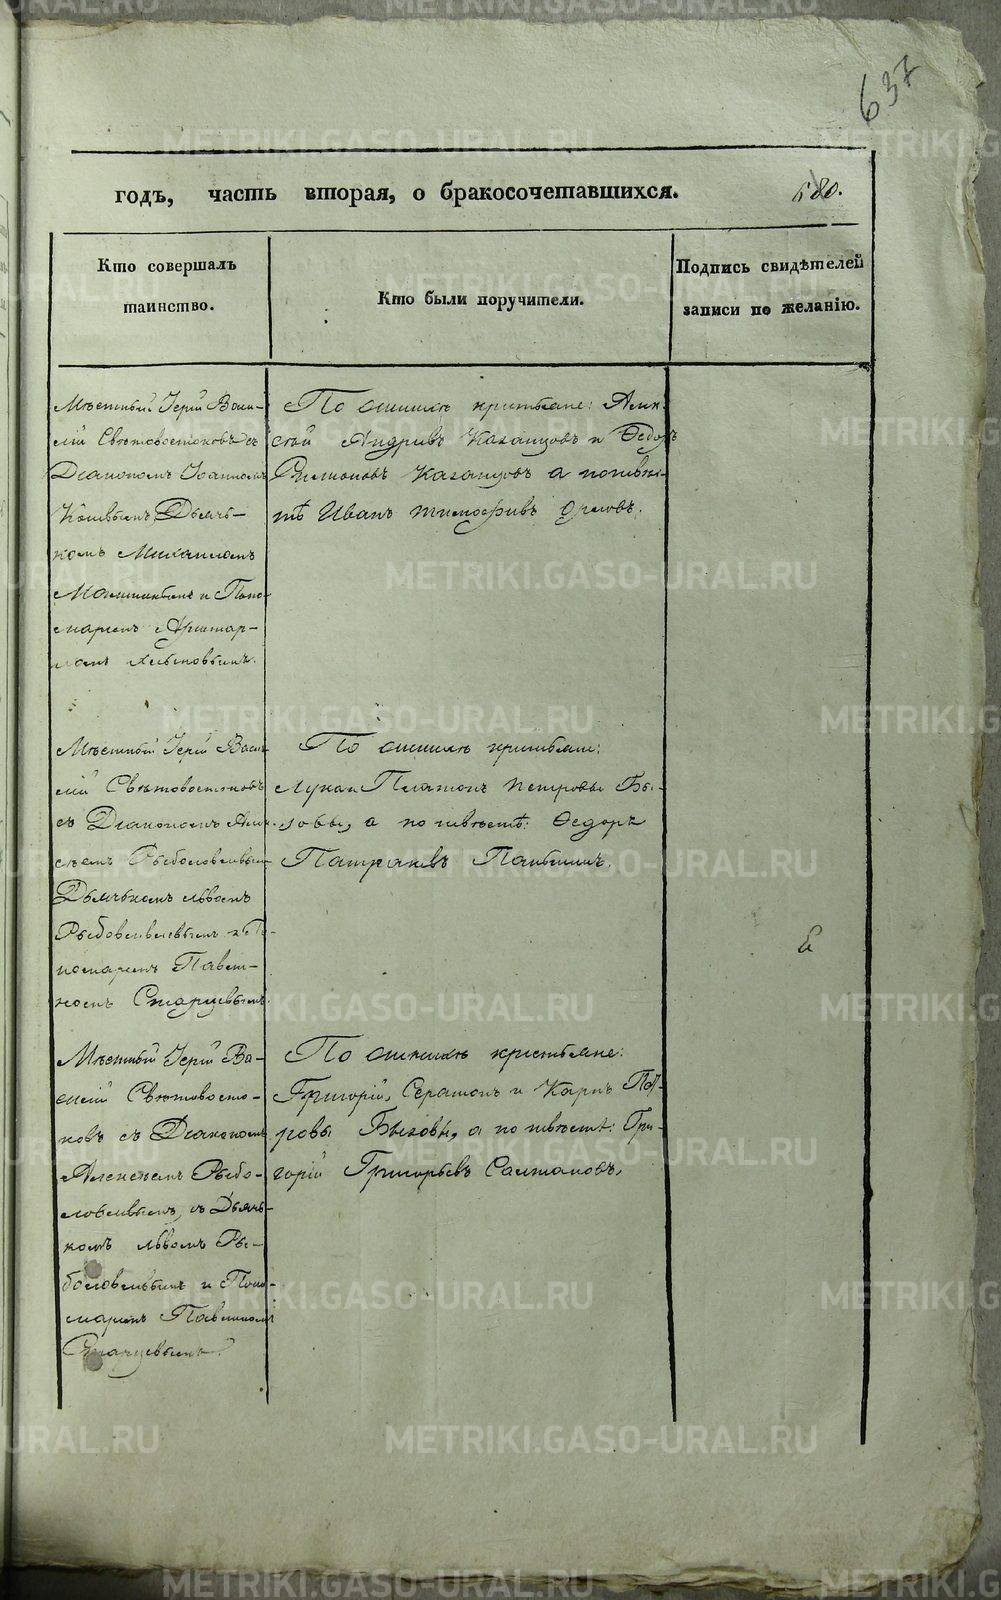 637
годъ, часть вторая, о бракосочетавшихся.
680.
Кто совершалъ
таинство.
Кто были поручители.
Подпись свидѣтелей
записи по желанію.
Мѣстный Іерей Васи-
лій Свѣтовостоковъ съ
Діакономъ Іоанномъ
Дьяч-
комъ Михаиломъ
и Поно-
маремъ Аристар-
хомъ
По женихѣ крестьяне: Алек-
сѣй Андреевъ Казанцовъ и Ѳедоръ
Казанцовъ а по невѣс-
тѣ Иванъ Тимофеевъ Орловъ.
Мѣстный Іерей Васи-
лій Свѣтовостоковъ
съ Діакономъ Алек-
сѣемъ Рыболовлевымъ
Дьячькомъ Львомъ
Рыболовлевымъ и По-
номаремъ Павли-
номъ Старцевымъ.
По женихѣ крестьяне:
Лука и Платонъ Петровы Бы-
ковы, а по невѣстѣ: Ѳедоръ
Патракѣевъ
Мѣстный Іерей Ва-
силій Свѣтовосто-
ковъ съ Діакономъ
Алексѣемъ Рыбо-
ловлевымъ, съ Дьячь-
комъ Львомъ Ры-
боловлевымъ и Поно-
маремъ Павлиномъ
Старцевымъ.
По женихѣ крестьяне:
Григорій, Серапіонъ и Карпъ Пет-
ровы Быковы, а по невѣстѣ: Гри-
горій Григорьевъ Салтановъ.
METRIKI.GASO-URAL.RU